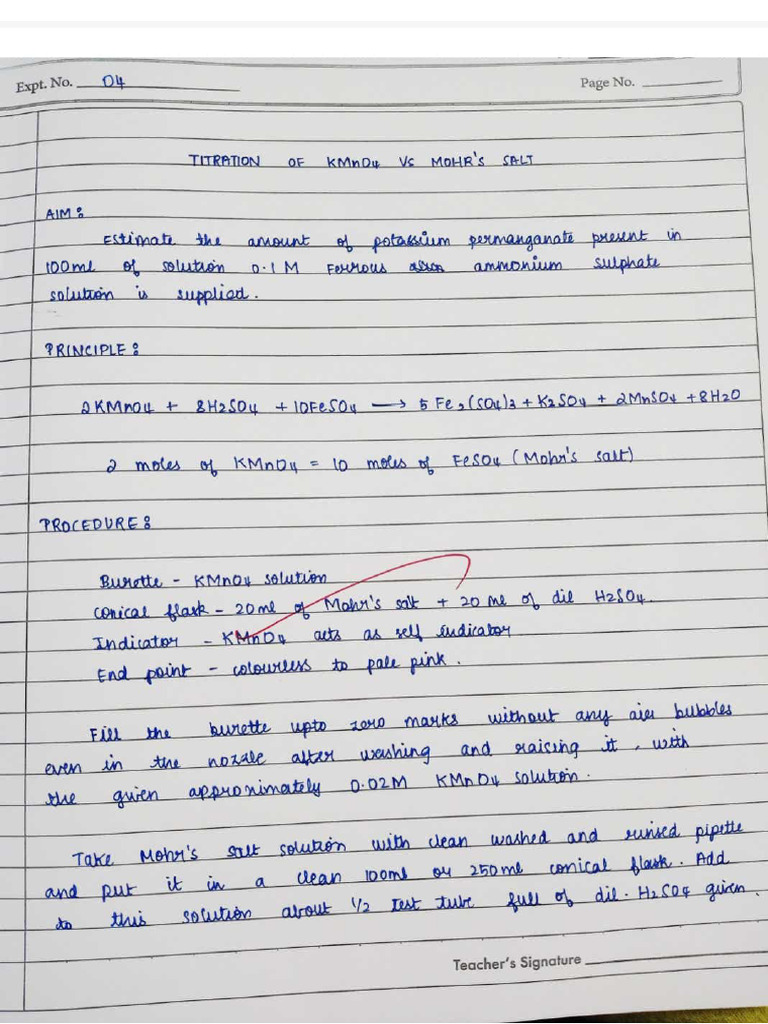 Expt. No. 04
Page No.
TITRATION OF KMnO4 VS MOHR'S SALT
AIM:
Estimate the amount of potassium permanganate present in
100ml of solution 0.1M Ferrous ammonium sulphate
solution is supplied.
PRINCIPLE:
2KMnO4 + 8H2SO4 + 10FeSO4 → 5Fe2(SO4)3 + K2SO4 + 2MnSO4 + 8H2O
2 moles of KMnO4 = 10 moles of FeSO4 (Mohr's salt)
PROCEDURE:
Burette - KMnO4 solution
Conical flask - 20ml of Mohr's salt + 20ml of dil H2SO4.
Indicator - KMnO4 acts as self indicator
End point - colourless to pale pink.
Fill the burette upto zero marks without any air bubbles
even in the nozzle after washing and raising it, with
the given approximately 0.02M KMnO4 solution.
Take Mohr's salt solution with clean washed and runsed pipette
and put it in a clean 100ml or 250ml conical flask. Add
to this solution about 1/2 test tube full of dil. H2SO4 given.
Teacher's Signature